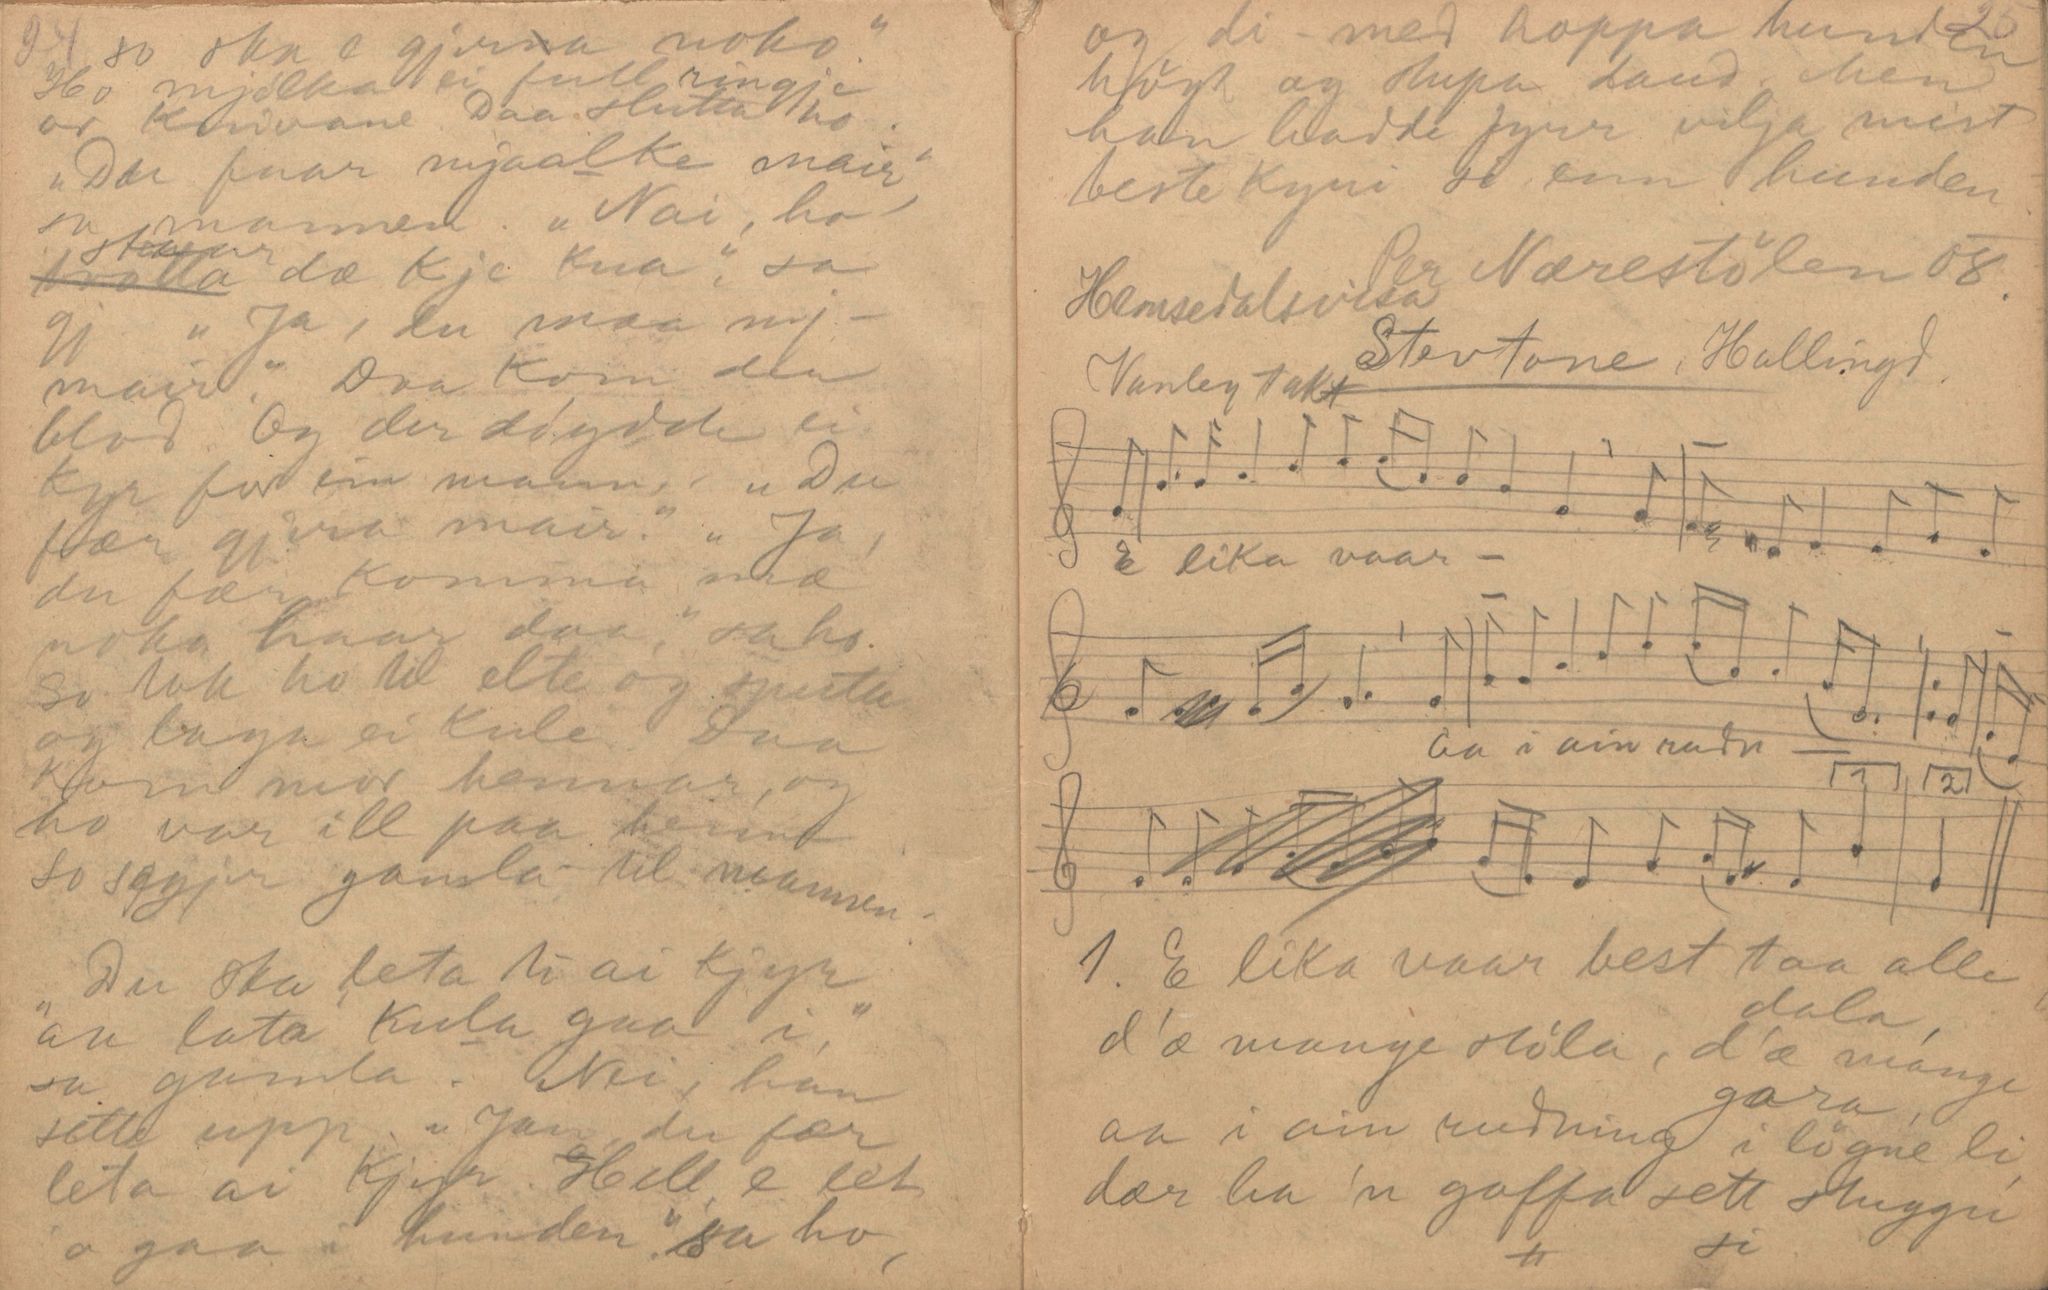 24
so ska e gjera noko"
Ho mjølka ei full ringje
or knivane. Daa slutta ho.
"Du faar mjaalke mair",
sa mannen. "Nai, ho
skaar
trotta dæ kje kua", sa
gj. "Ja, du maa mj-
mair." Daa kom dæ
blod. Og der døydde ei
kyr for ein mann. "Du
fær gjera mair." "Ja,
du fær komma mæ
noko haar daa," sa ho.
So tok ho til elte og sputta
og laga ei kule. Daa
kom mor hennar, og
ho var ill paa henne
so segjer gamla til mannen.
"Du ska leta ti ai kjyr
an lata kula gaa i,"
sa gamla. Nei, han
sette upp. "Jau, du fær
leta ai kjyr. Hell e let
o gaa i hunden," sa ho,
25
og di med hoppa hunden
høgt og stupa daud. Men
han hadde fyrr vilja mist
beste kyri si enn hunden
Per Nærestölen 08.
Hemsedalsvisa
Stevtone, Hallingd.
Vanleg takt
E lika vaar –
aa i ain rudn —
1 2
1. E lika vaar best taa alle
dala,
d'æ mange stöla, d'æ mange
gara,
aa i ain rudning i lögne li,
dær ha 'n goffa sett stuggu
si